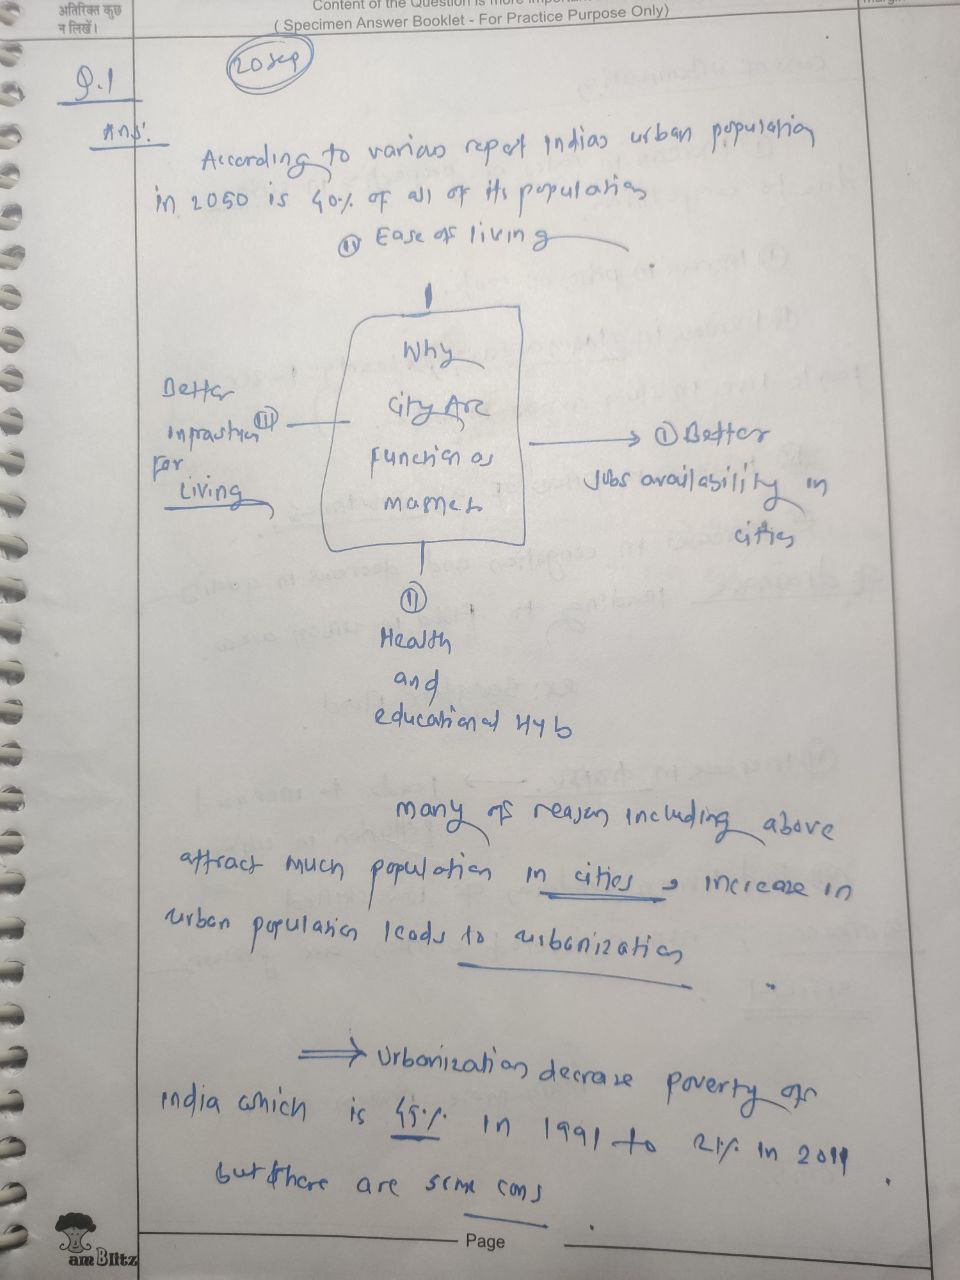 अतिरिक्त कुछ
न लिखें।
Content of the Question is more
( Specimen Answer Booklet - For Practice Purpose Only)
20 sep
Q.1
Ans:
According to various report Indias urban population
in 2050 is 40% of all of its population
Ease of living
Why
city Are
Function as
magnet
Better
III
For
Living
I Better
Jobs availability in
cities
II
Health
and
educational Hub
many of reason including above
attract much population in cities, increase in
urban population leads to urbanization
⇒ Urbanization decrease poverty of
india which is 45% in 1991 to 21% in 2011.
but there are some cons.
Page
am Blitz